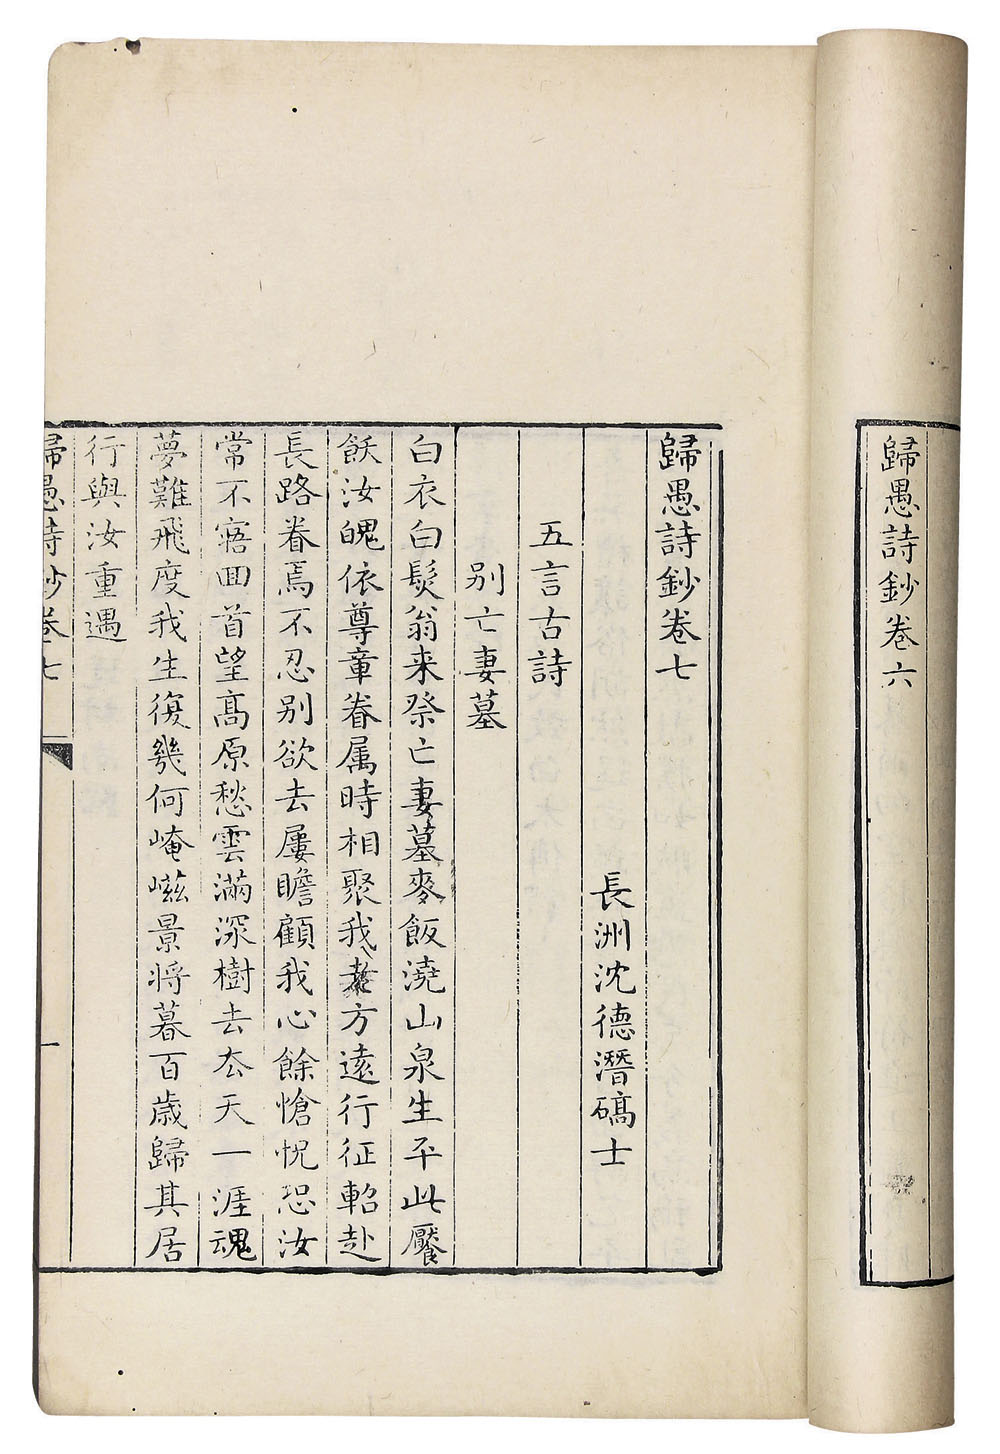 歸愚詩鈔卷六
歸愚詩鈔卷七
長洲沈德潛碻士
五言古詩
别亡妻墓
白衣白髮翁来祭亡妻墓麥飯澆山泉生平此饜
飫汝魄依尊章眷属時相聚我友方遠行征軺赴
長路眷焉不忍别欲去屢瞻顧我心餘愴怳恐汝
常不寤囬首望髙原愁雲滿深樹去去天一涯魂
夢難飛度我生復幾何崦嵫景将暮百歲歸其居
行與汝重遇
歸愚詩鈔卷七
一